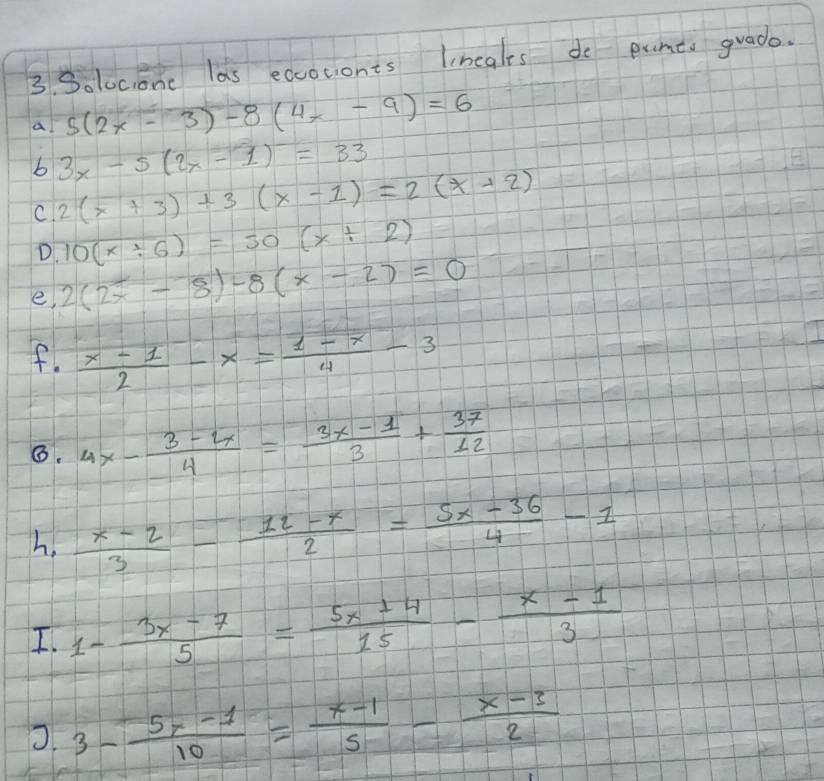 3. Solucione las ecuaciones lineales de primer grado.
a. 5(2x - 3) - 8(4x - 9) = 6
b 3x - 5(2x - 1) = 33
c. 2(x + 3) + 3(x - 1) = 2(x + 2)
D. 10(x + 6) = 50(x + 2)
e. 2(2x - 8) - 8(x - 2) = 0
f. \frac{x - 1}{2} - x = \frac{1 - x}{4} - 3
G. 4x - \frac{3 - 2x}{4} = \frac{3x - 1}{3} + \frac{37}{12}
h. \frac{x - 2}{3} - \frac{12 - x}{2} = \frac{5x - 36}{4} - 1
I. 1 - \frac{3x - 7}{5} = \frac{5x + 4}{15} - \frac{x - 1}{3}
J. 3 - \frac{5x - 1}{10} = \frac{x - 1}{5} - \frac{x - 3}{2}